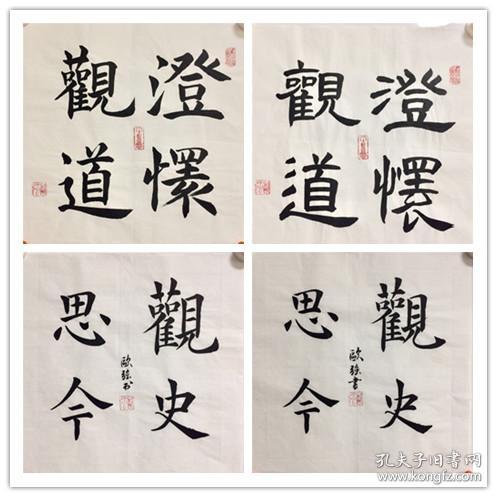 澄懷
觀道
澄懷
觀道
觀史
思今
歐強書
觀史
思今
歐強書
孔夫子旧书网
www.kongfz.com